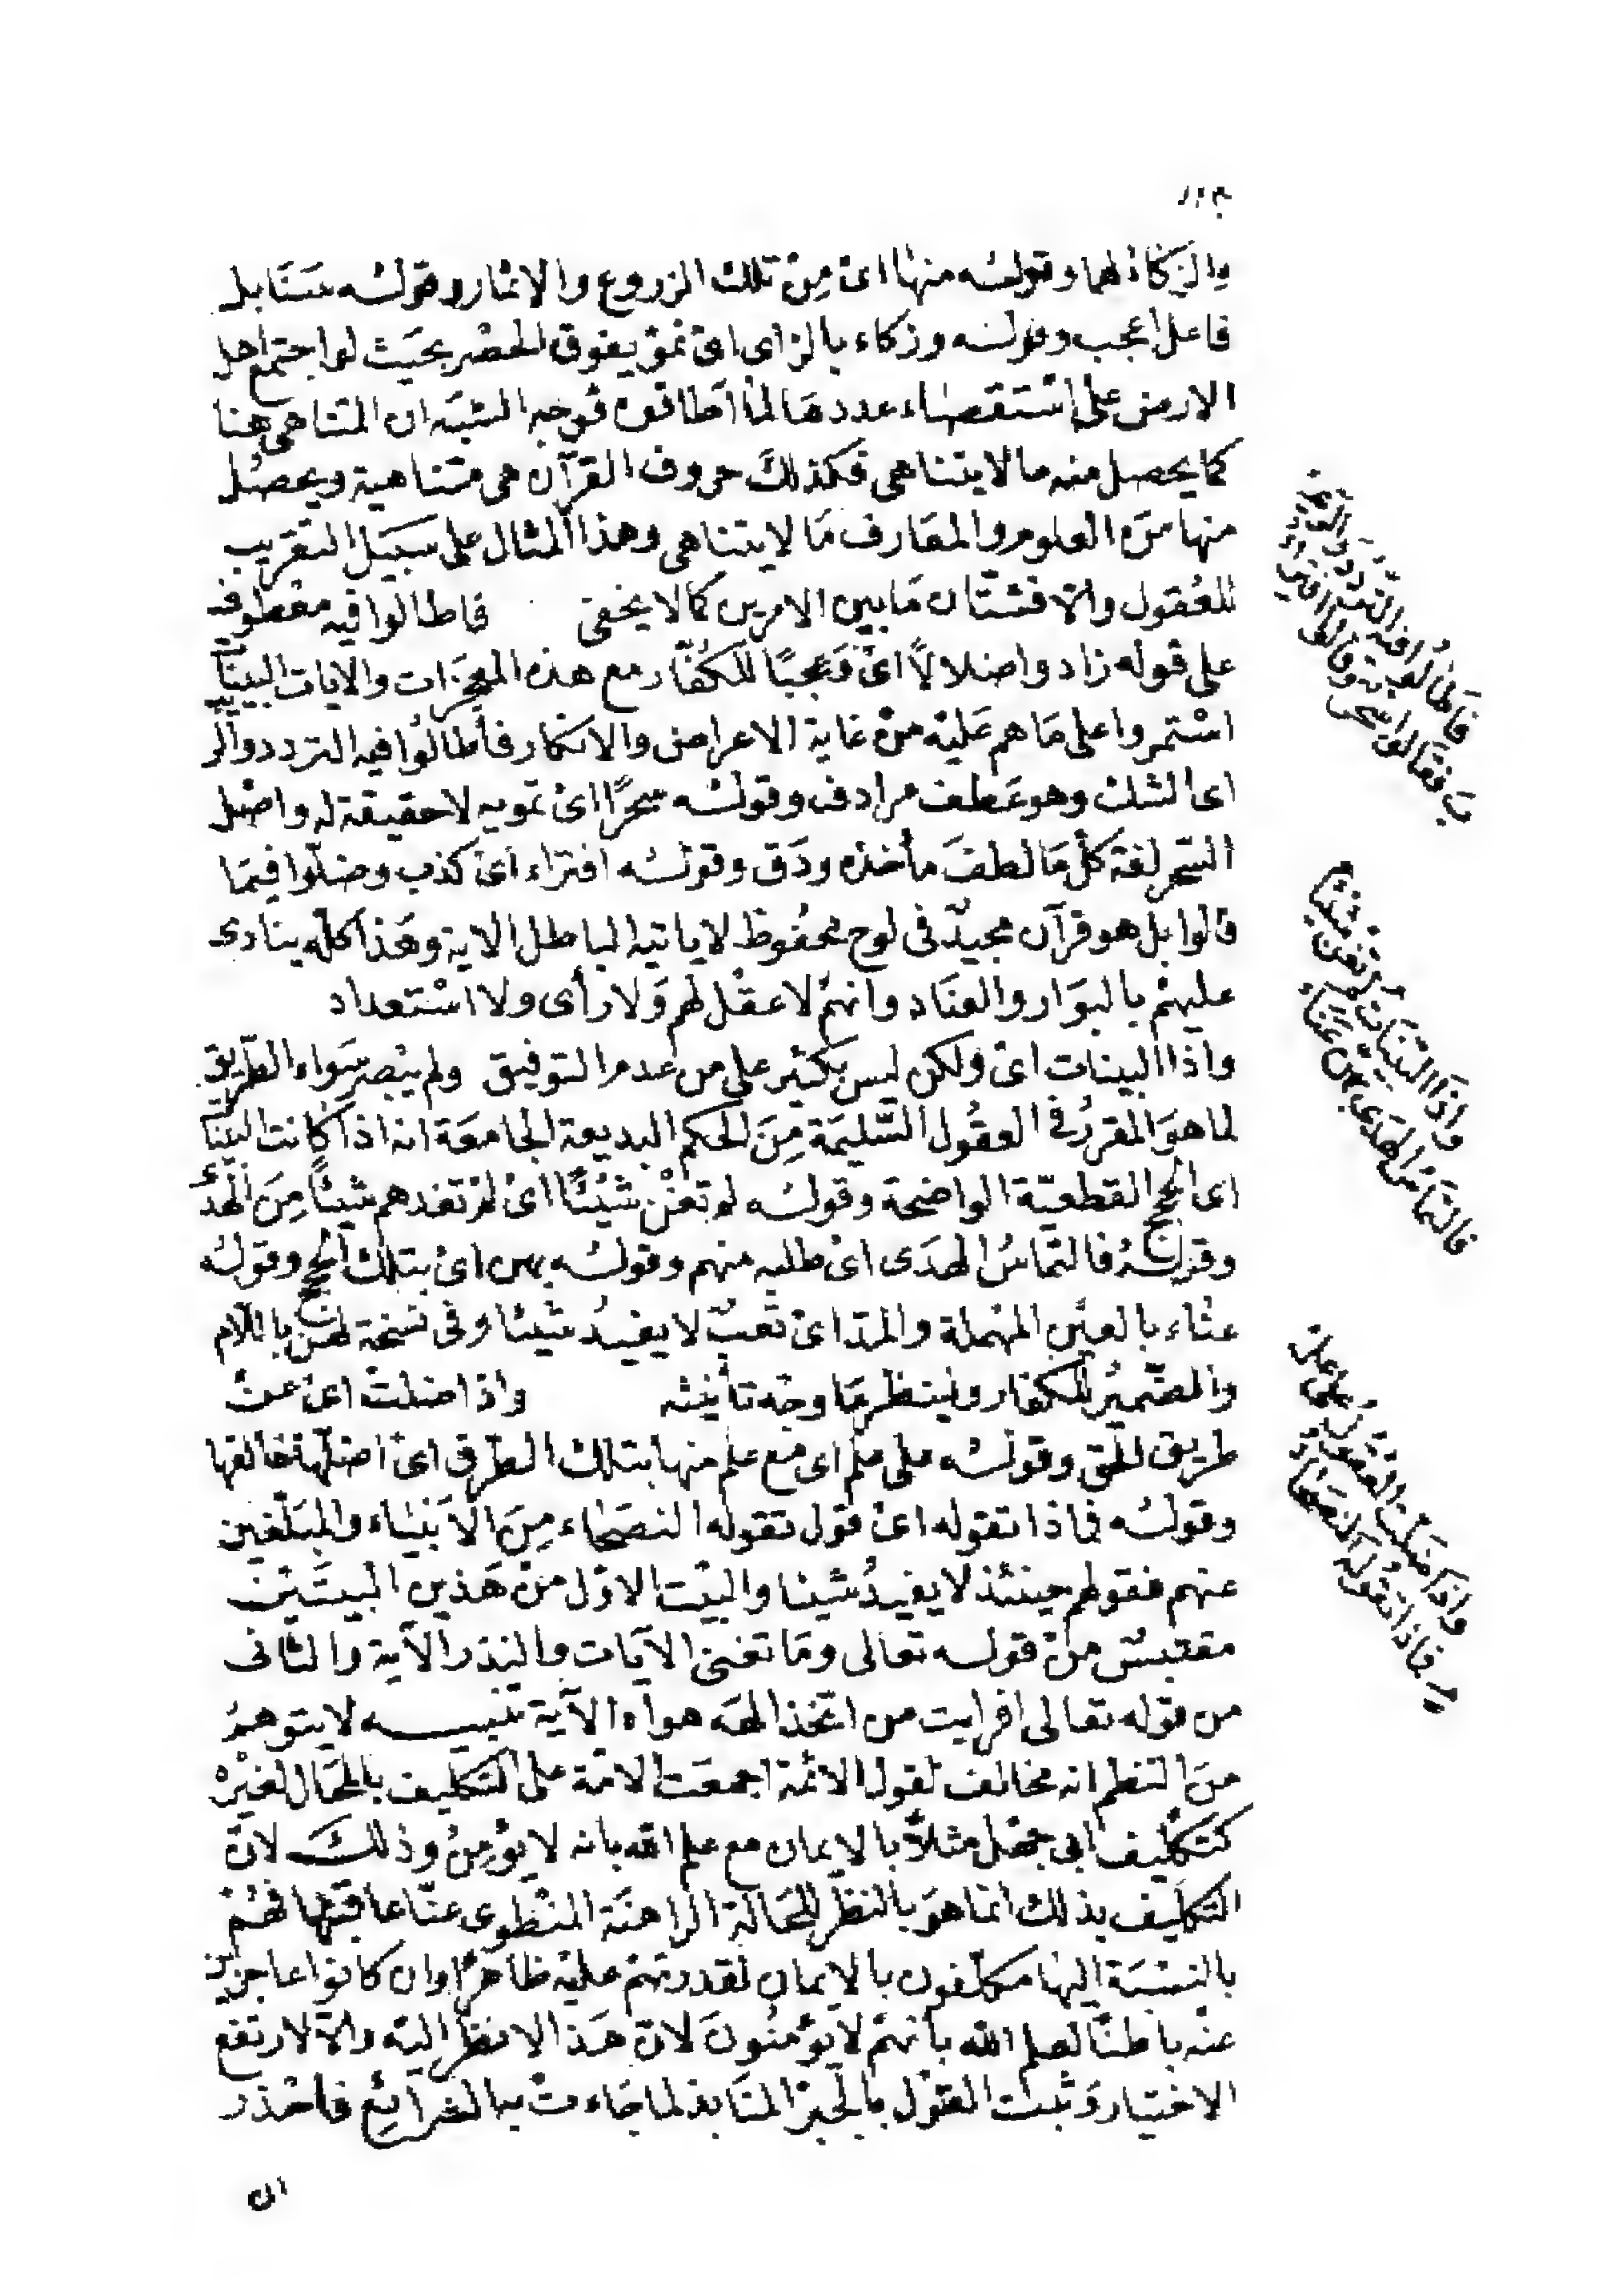 والزكاة لهما وقوله منها اى من تلك الزروع والاثمار وقوله سنابل
فاعل اعجب وقوله وزكاء بالزاى اى نمو يفوق الحصر بحيث لو اجتمع اهل
الارض على استقصاء عددها لما اطاقوه فوجه الشبه ان المتناهى هنا
كما يحصل منه ما لا يتناهى فكذلك حروف القرآن هى متناهية ويحصل
منها من العلوم والمعارف ما لا يتناهى وهذا المثال على سبيل التقريب
للعقول والا فشتان ما بين الامرين كما لا يخفى فاطالوا فيه معطوف
على قوله زادوا ضلالا اى فعجبا للكفار مع هذه المعجزات والايات البينات
استمروا على ما هم عليه من غاية الاعراض والانكار فأطالوا فيه التردد والر
اى الشك وهو عطف مرادف وقوله سحرا اى تمويه لا حقيقة له واصل
السحر لغة كل ما لطف مأخذه ودق وقوله افتراء اى كذب وضلوا فيما
قالوا بل هو قرآن مجيد فى لوح محفوظ لا ياتيه الباطل الاية وهذا كله ينادى
عليهم بالبوار والعناد وانهم لا عقل لهم ولا رأى ولا استعداد
واذا البينات اى ولكن ليس بكثير على من عدم التوفيق ولم يبصر سواء الطريق
لما هو المقرر فى العقول السليمة من الحكم البديعة الجامعة انه اذا كانت البينا
اى الحجج القطعية الواضحة وقوله لم تغن شيئا اى لم تفدهم شيئا من الهدى
وقوله فالتماس الهدى اى طلبه منهم وقوله بهن اى بتلك الحجج وقوله
عناء بالعين المهملة والمد اى تعب لا يفيد شيئا وفى نسخة لهن باللام
والضمير للكفار ولينظر ما وجه تأنيثه واذا ضلت اى عن
طريق الحق وقوله على علم اى مع علم منها بتلك الطرق اى اضلها خالقها
وقوله فماذا تقوله اى قول تقوله النصحاء من الانبياء والمبلغين
عنهم فقولهم حينئذ لا يفيد شيئا والبيت الاول من هذين البيتين
مقتبس من قوله تعالى وما تغنى الآيات والنذر الآية والثانى
من قوله تعالى افرايت من اتخذ الهه هواه الآية تنبيه لا يتوهم
من النظم انه مخالف لقول الائمة اجمعت الامة على التكليف بالمحال لغيره
كتكليف ابى جهل مثلا بالايمان مع علم الله بانه لا يؤمن وذلك لان
التكليف بذلك انما هو بالنظر للحالة الراهنة المنطوى عنا عاقبتها فهم
بالنسبة اليها مكلفون بالايمان لقدرتهم عليه ظاهرا وان كانوا عاجزين
عنه باطنا لعلم الله بانهم لا يؤمنون لان هذا لا نظر اليه والا لارتفع
الاختيار وثبت القول بالجبر المنابذ لما جاءت به الشرائع فاحذر
ان
فاطالوا فيه التردد والريـ
ب فقالوا سحر وقالوا افتراء
واذا البينات لم تغن شيئا
فالتماس الهدى بهن عناء
واذا ضلت العقول على علم
فماذا تقوله النصحاء